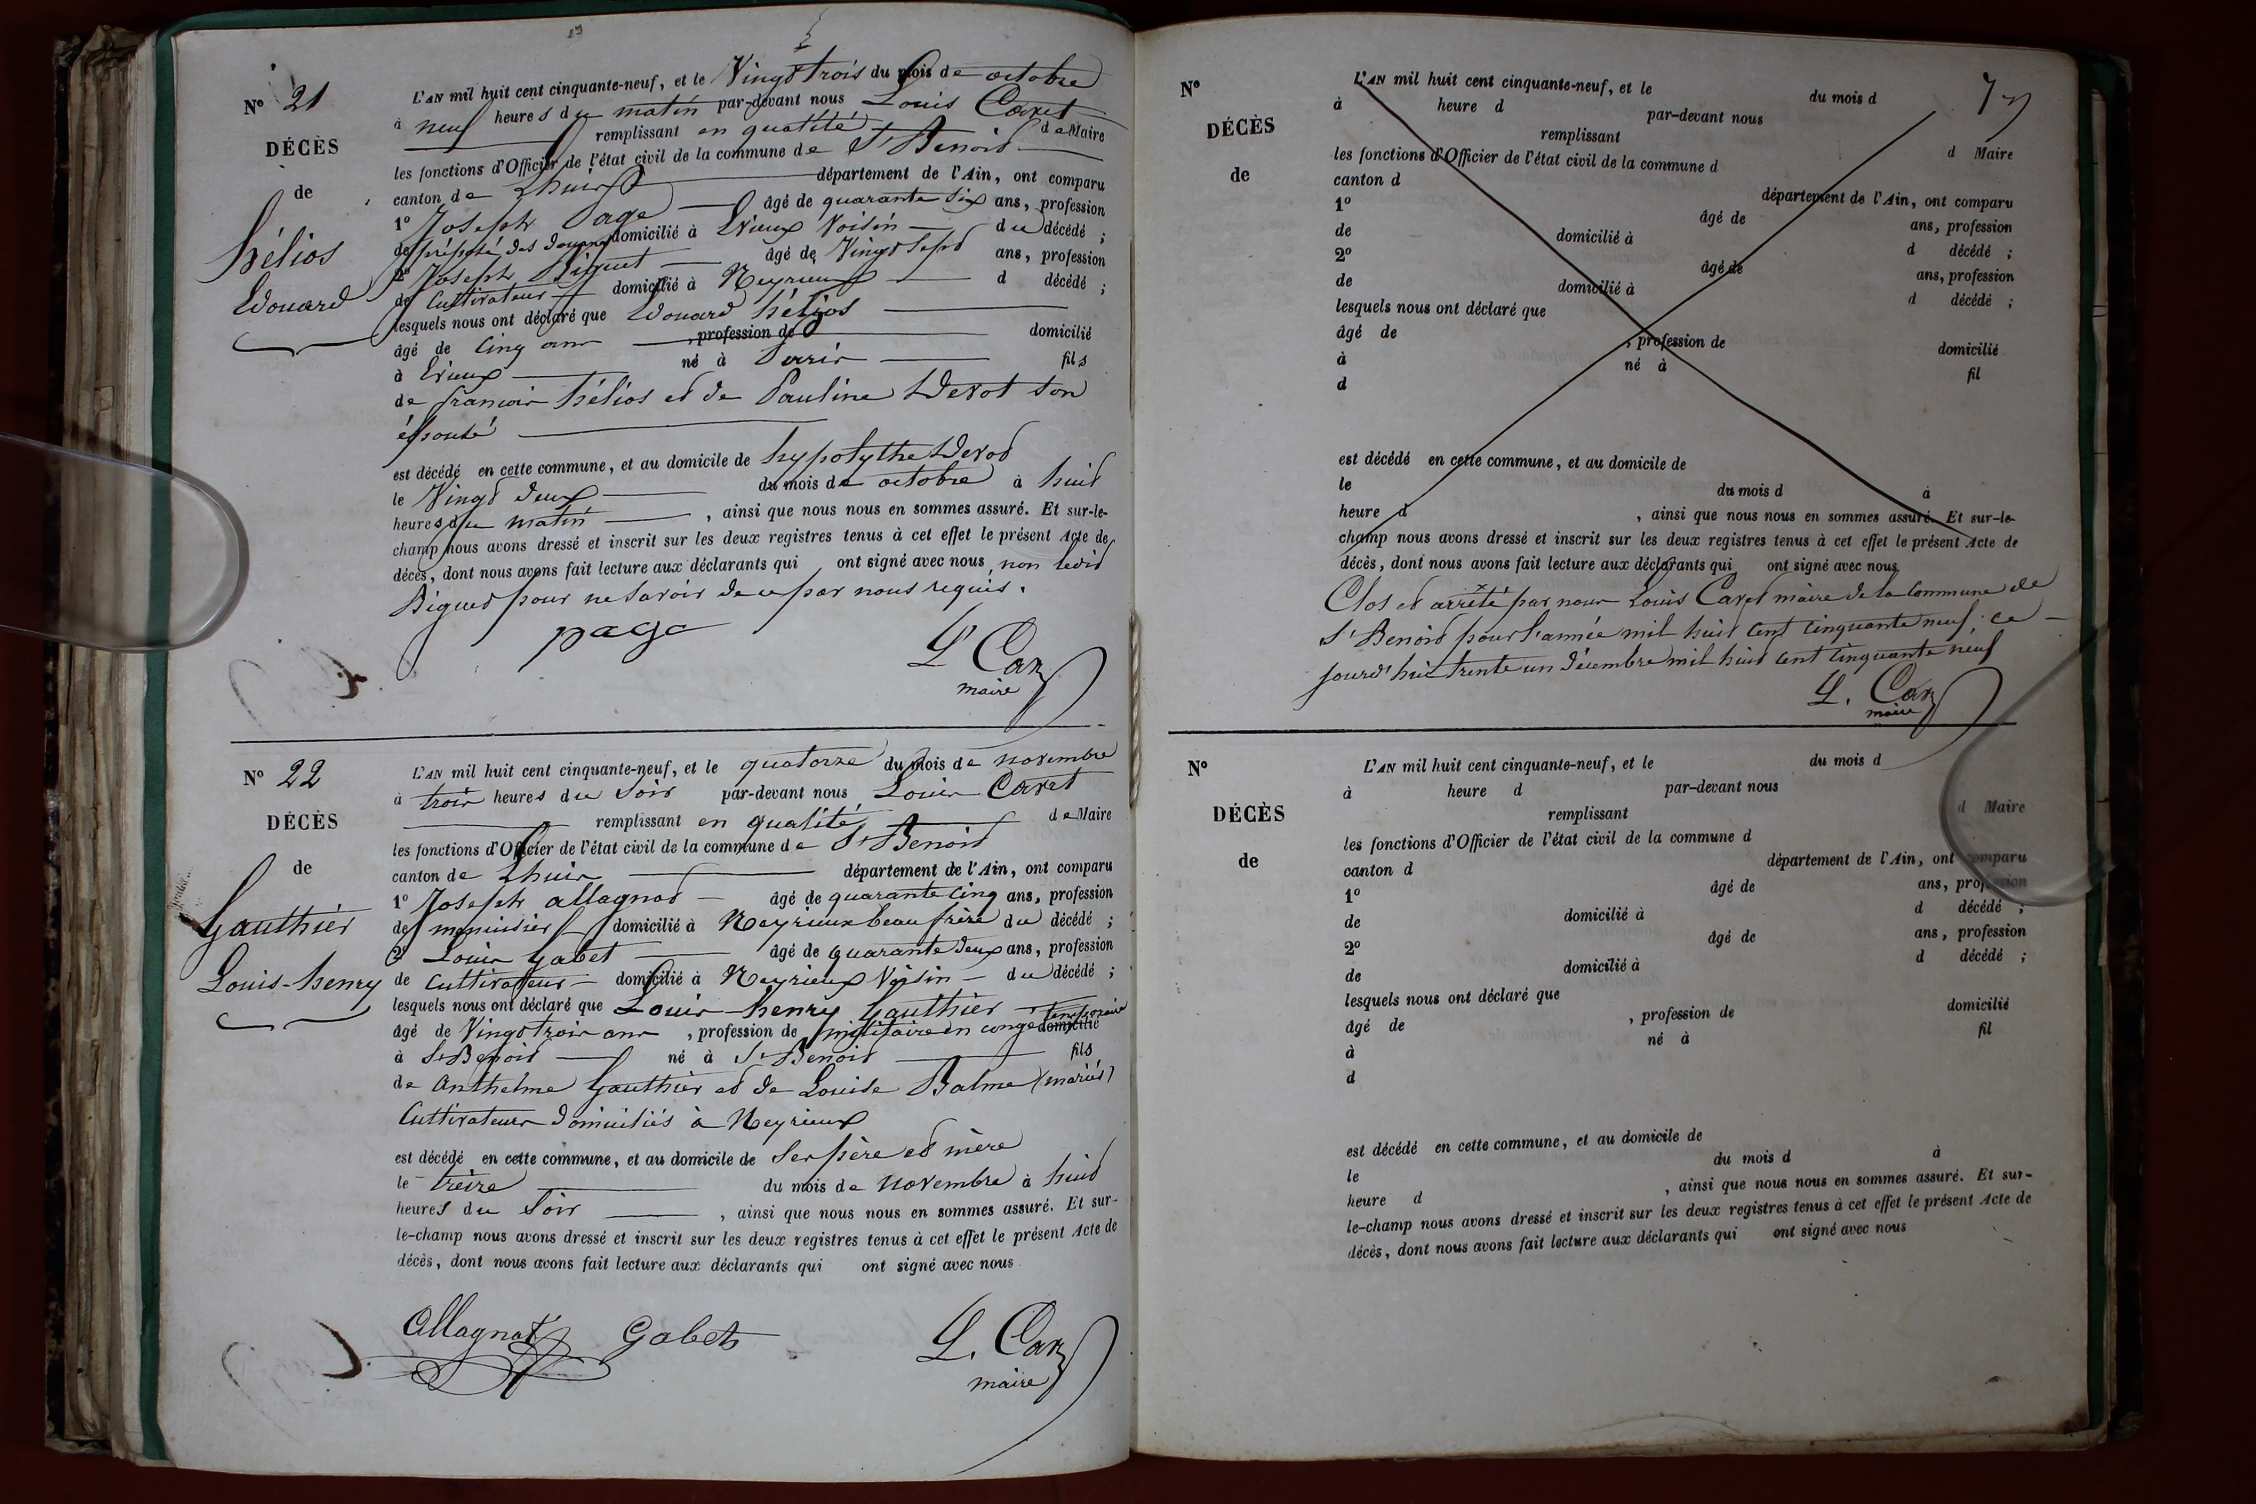 N° 21
DÉCÈS
de
hélios
Edouard
L'AN mil huit cent cinquante-neuf, et le Vingt trois du mois de octobre
à neuf heures du matin par-devant nous Louis Carret
remplissant en qualité de Maire
les fonctions d'Officier de l'état civil de la commune de St Benoit
canton de Lhuis département de l'Ain, ont comparu
1° Joseph Page âgé de quarante six ans, profession
de préposé des douanes domicilié à Evieux Voisin du décédé ;
2° Joseph Biguet âgé de Vingt Sept ans, profession
de Cultivateur domicilié à Neyrieux d décédé ;
lesquels nous ont déclaré que Edouard hélios
âgé de Cinq ans , profession de domicilié
à Evieux né à Paris fils
de françois hélios et de Pauline Devot Son
épouse
est décédé en cette commune, et au domicile de hypolythe Devod
le Vingt deux du mois de octobre à huit
heures du matin , ainsi que nous nous en sommes assuré. Et sur-le-
champ nous avons dressé et inscrit sur les deux registres tenus à cet effet le présent Acte de
décès, dont nous avons fait lecture aux déclarants qui ont signé avec nous non ledit
Biguet pour ne Savoir de ce par nous requis.
page
L. Car
maire
N° 22
DÉCÈS
de
Gauthier
Louis-henry
L'AN mil huit cent cinquante-neuf, et le quatorze du mois de novembre
à trois heures du Soir par-devant nous Louis Carret
remplissant en qualité de Maire
les fonctions d'Officier de l'état civil de la commune de St Benoit
canton de Lhuis département de l'Ain, ont comparu
1° Joseph allagnat âgé de quarante Cinq ans, profession
de menuisier domicilié à Neyrieux beau frère du décédé ;
2° Louis Gabet âgé de quarante deux ans, profession
de Cultivateur domicilié à Neyrieux Voisin du décédé ;
lesquels nous ont déclaré que Louis henry Gauthier
âgé de Vingt trois ans , profession de militaire en congé temporaire domicilié
à St Benoit né à St Benoit fils
de Anthelme Gauthier et de Louise Balme (mariés)
Cultivateurs domiciliés à Neyrieux
est décédé en cette commune, et au domicile de Ses père et mère
le treize du mois de novembre à huit
heures du Soir , ainsi que nous nous en sommes assuré. Et sur-
le-champ nous avons dressé et inscrit sur les deux registres tenus à cet effet le présent Acte de
décès, dont nous avons fait lecture aux déclarants qui ont signé avec nous
Allagnat Gabet L. Car
maire
N°
DÉCÈS
de
L'AN mil huit cent cinquante-neuf, et le du mois d
à heure d par-devant nous
remplissant d Maire
les fonctions d'Officier de l'état civil de la commune d
canton d département de l'Ain, ont comparu
1° âgé de ans, profession
de domicilié à d décédé ;
2° âgé de ans, profession
de domicilié à d décédé ;
lesquels nous ont déclaré que
âgé de , profession de domicilié
à né à fil
d
est décédé en cette commune, et au domicile de
le du mois d à
heure d , ainsi que nous nous en sommes assuré. Et sur-le-
champ nous avons dressé et inscrit sur les deux registres tenus à cet effet le présent Acte de
décès, dont nous avons fait lecture aux déclarants qui ont signé avec nous
Clos et arrêté par nous Louis Carret maire de la Commune de
St Benoit pour l'année mil huit Cent Cinquante neuf. ce
jourd'hui trente un décembre mil huit cent Cinquante neuf
L. Car
maire
N°
DÉCÈS
de
L'AN mil huit cent cinquante-neuf, et le du mois d
à heure d par-devant nous
remplissant d Maire
les fonctions d'Officier de l'état civil de la commune d
canton d département de l'Ain, ont comparu
1° âgé de ans, profession
de domicilié à d décédé ;
2° âgé de ans, profession
de domicilié à d décédé ;
lesquels nous ont déclaré que
âgé de , profession de domicilié
à né à fil
d
est décédé en cette commune, et au domicile de
le du mois d à
heure d , ainsi que nous nous en sommes assuré. Et sur-
le-champ nous avons dressé et inscrit sur les deux registres tenus à cet effet le présent Acte de
décès, dont nous avons fait lecture aux déclarants qui ont signé avec nous